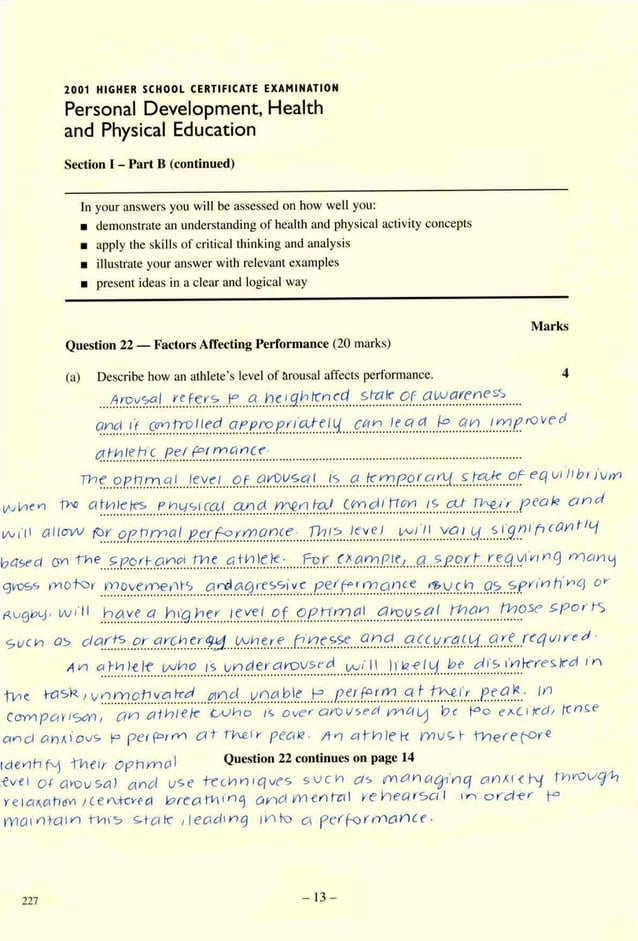 2001 HIGHER SCHOOL CERTIFICATE EXAMINATION
Personal Development, Health
and Physical Education
Section I – Part B (continued)
In your answers you will be assessed on how well you:
■ demonstrate an understanding of health and physical activity concepts
■ apply the skills of critical thinking and analysis
■ illustrate your answer with relevant examples
■ present ideas in a clear and logical way
Marks
Question 22 — Factors Affecting Performance (20 marks)
(a) Describe how an athlete's level of arousal affects performance. 4
Arousal refers to a heightened state of awareness
and if controlled appropriately can lead to an improved
athletic performance.
The optimal level of arousal is a temporary state of equilibrium
when the athletes physical and mental condition is at their peak and
will allow for optimal performance. This level will vary significantly
based on the sport and the athlete. For example, a sport requiring many
gross motor movements and agressive performance such as sprinting or
Rugby, will have a higher level of optimal arousal than those sports
such as darts or archery where finesse and accuracy are required.
An athlete who is underaroused will likely be disinterested in
the task, unmotivated and unable to perform at their peak. In
comparison, an athlete who is over aroused may be too excited, tense
and anxious to perform at their peak. An athlete must therefore
identify their optimal
Question 22 continues on page 14
level of arousal and use techniques such as managing anxiety through
relaxation, centered breathing and mental rehearsal in order to
maintain this state, leading into a performance.
227
– 13 –